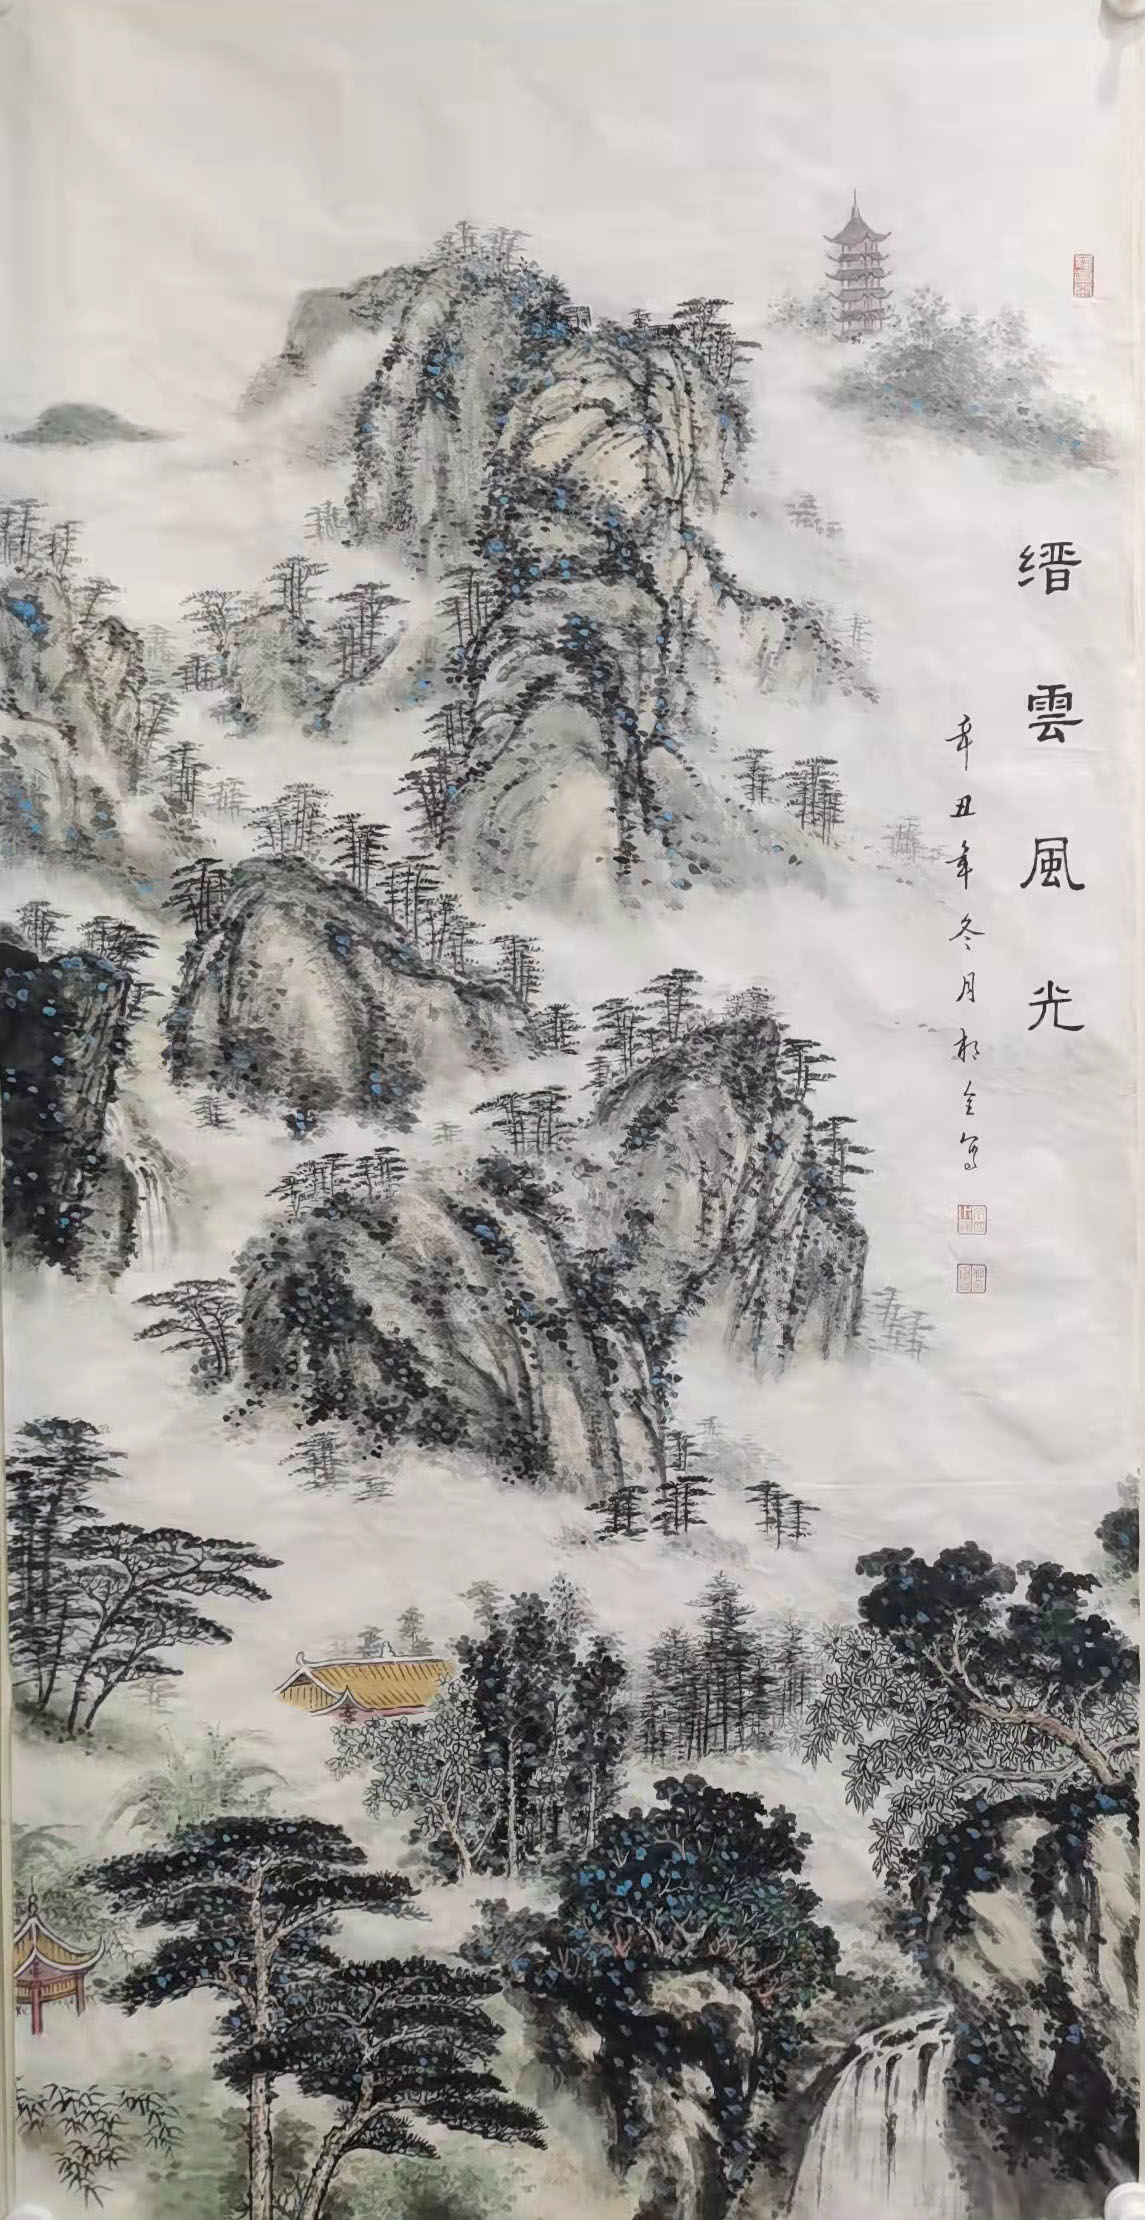 缙雲風光
辛丑年冬月松全写